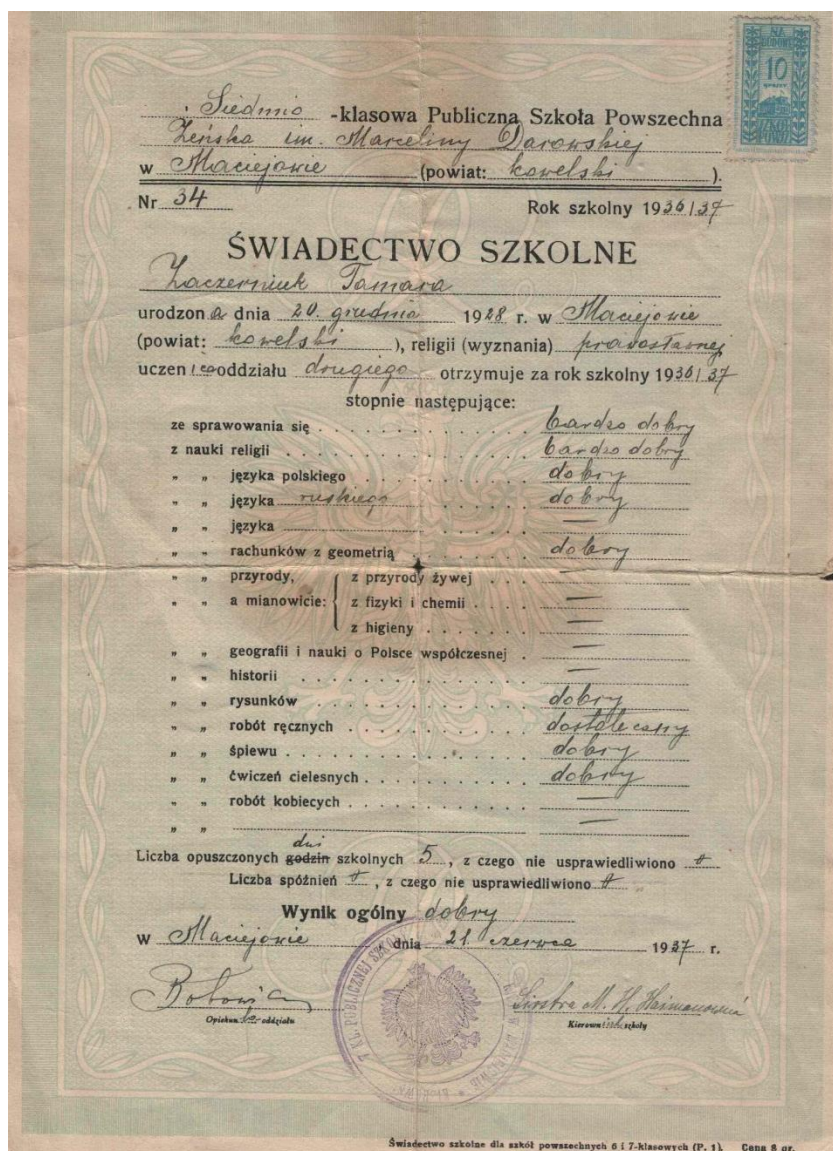 NA
BUDOWĘ
10
GROSZY
SZKÓŁ
Siedmio -klasowa Publiczna Szkoła Powszechna
Żeńska im. Marceliny Darowskiej
w Maciejowie (powiat: kowelski ).
Nr 34 Rok szkolny 1936/37
ŚWIADECTWO SZKOLNE
Zaczerniuk Tamara
urodzona dnia 20. grudnia 1928 r. w Maciejowie
(powiat: kowelski ), religii (wyznania) prawosławnej
uczenica oddziału drugiego otrzymuje za rok szkolny 1936/37
stopnie następujące:
ze sprawowania się . . . bardzo dobry
z nauki religii . . . bardzo dobry
" " języka polskiego . . . dobry
" " języka ruskiego dobry
" " języka —
" " rachunków z geometrią . . . dobry
" " przyrody, { z przyrody żywej . . . —
" " a mianowicie: { z fizyki i chemii . . . . —
z higieny . . . —
" " geografii i nauki o Polsce współczesnej . —
" " historii . . . —
" " rysunków . . . dobry
" " robót ręcznych . . . dostateczny
" " śpiewu . . . dobry
" " ćwiczeń cielesnych . . . dobry
" " robót kobiecych . . . —
" " —
dni
Liczba opuszczonych godzin szkolnych 5, z czego nie usprawiedliwiono 0
Liczba spóźnień 0, z czego nie usprawiedliwiono 0
Wynik ogólny dobry
w Maciejowie dnia 21. czerwca 1937 r.
7 KL. PUBLICZNEJ SZKOŁY
W MACIEJOWIE
Siostra M. H.
Opiekun oddziału Kierownik szkoły
Świadectwo szkolne dla szkół powszechnych 6 i 7-klasowych (P. 1). Cena 8 gr.